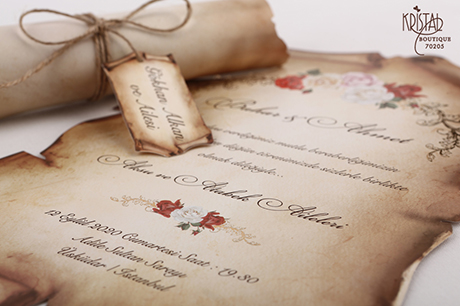 KRISTAL
BOUTIQUE
70205
Gökhan Alkan
ve Ailesi
Bahar & Ahmet
beraberliğimizin
düğün törenimizde sizlerle birlikte
olmak dileğiyle...
Akın ve Aileleri
12 Eylül 2020 Cumartesi Saat : 19.30
Adile Sultan Sarayı
Üsküdar / İstanbul